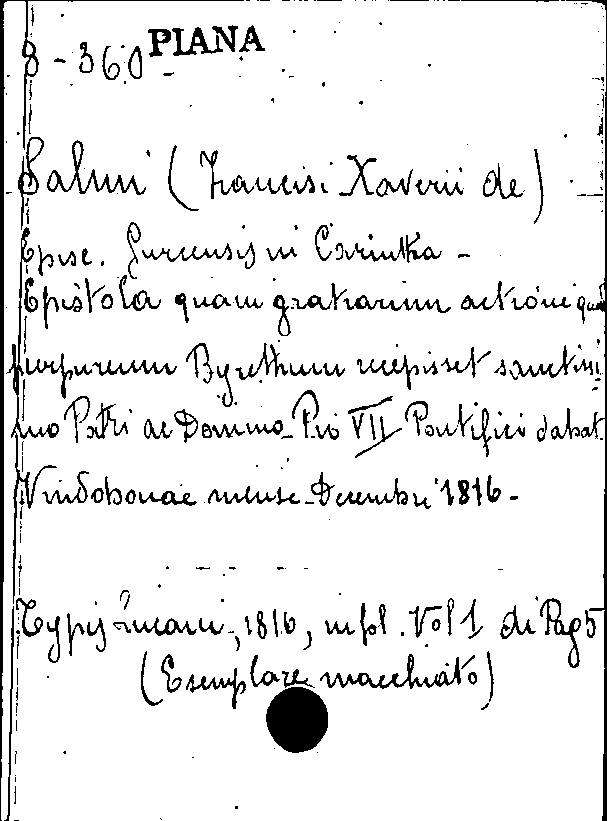 8-360 PIANA
Salmi (Francisi Xaverii de)
Episc. Gurcensis in Carinthia -
Epistola quam gratiarum actione quod
purpureum Byrethum recepisset sanctissi
mo Patri ac Domino Pio VII Pontifici dabat
Vindobonae mense Decembri 1816 -
Typis, 1816, in fol. Vol 1 di Pag 5
(Esemplare macchiato)